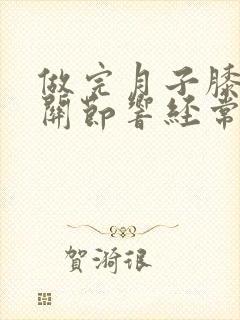 做完月子膝
關節響經常
賀漪很